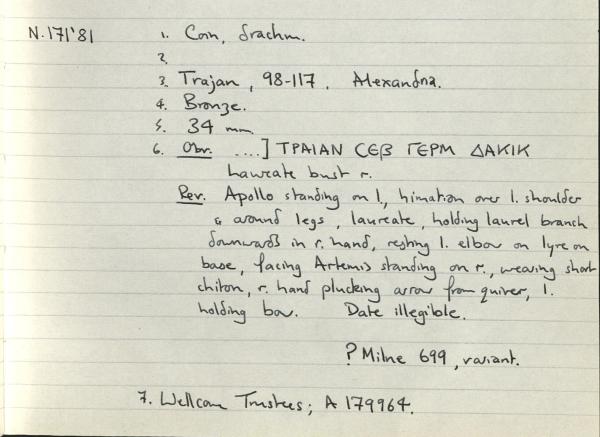 N.171'81
1. Coin, drachm.
2.
3. Trajan, 98-117. Alexandria.
4. Bronze.
5. 34 mm
6. Obv. ....] ΤΡΑΙΑΝ ϹΕΒ ΓΕΡΜ ΔΑΚΙΚ
Laureate bust r.
Rev. Apollo standing on l., himation over l. shoulder
& around legs, laureate, holding laurel branch
downwards in r. hand, resting l. elbow on lyre on
base, facing Artemis standing on r., wearing short
chiton, r. hand plucking arrow from quiver, l.
holding bow. Date illegible.
? Milne 699, variant.
7. Wellcome Trustees; A 179964.